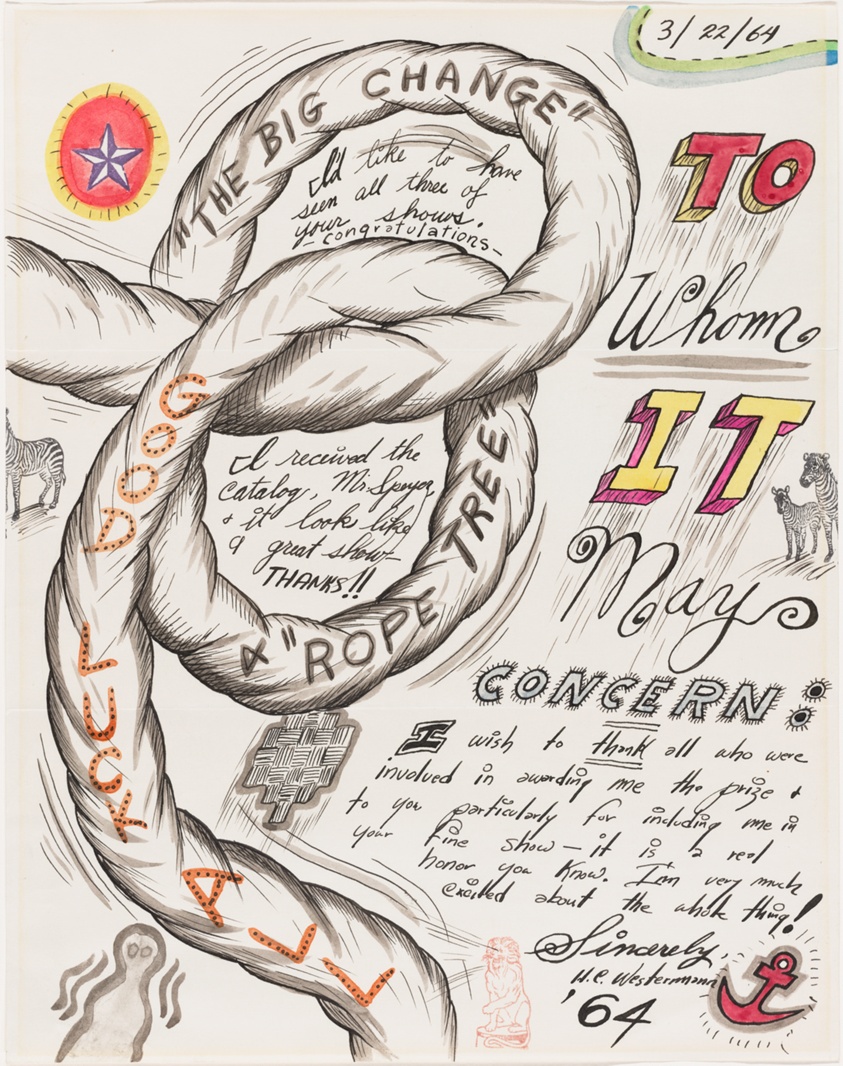 3/22/64
"THE BIG CHANGE"
I'd like to have
seen all three of
your shows.
-congratulations-
TO
Whom
IT
May
CONCERN:
GOOD LUCK ALL
I received the
catalog, Mr. Speyer,
& it look like
a great show-
THANKS!!
& "ROPE TREE"
I wish to thank all who were
involved in awarding me the prize &
to you particularly for including me in
your fine show — it is a real
honor you know. I'm very much
excited about the whole thing!
Sincerely,
H.C. Westermann
'64